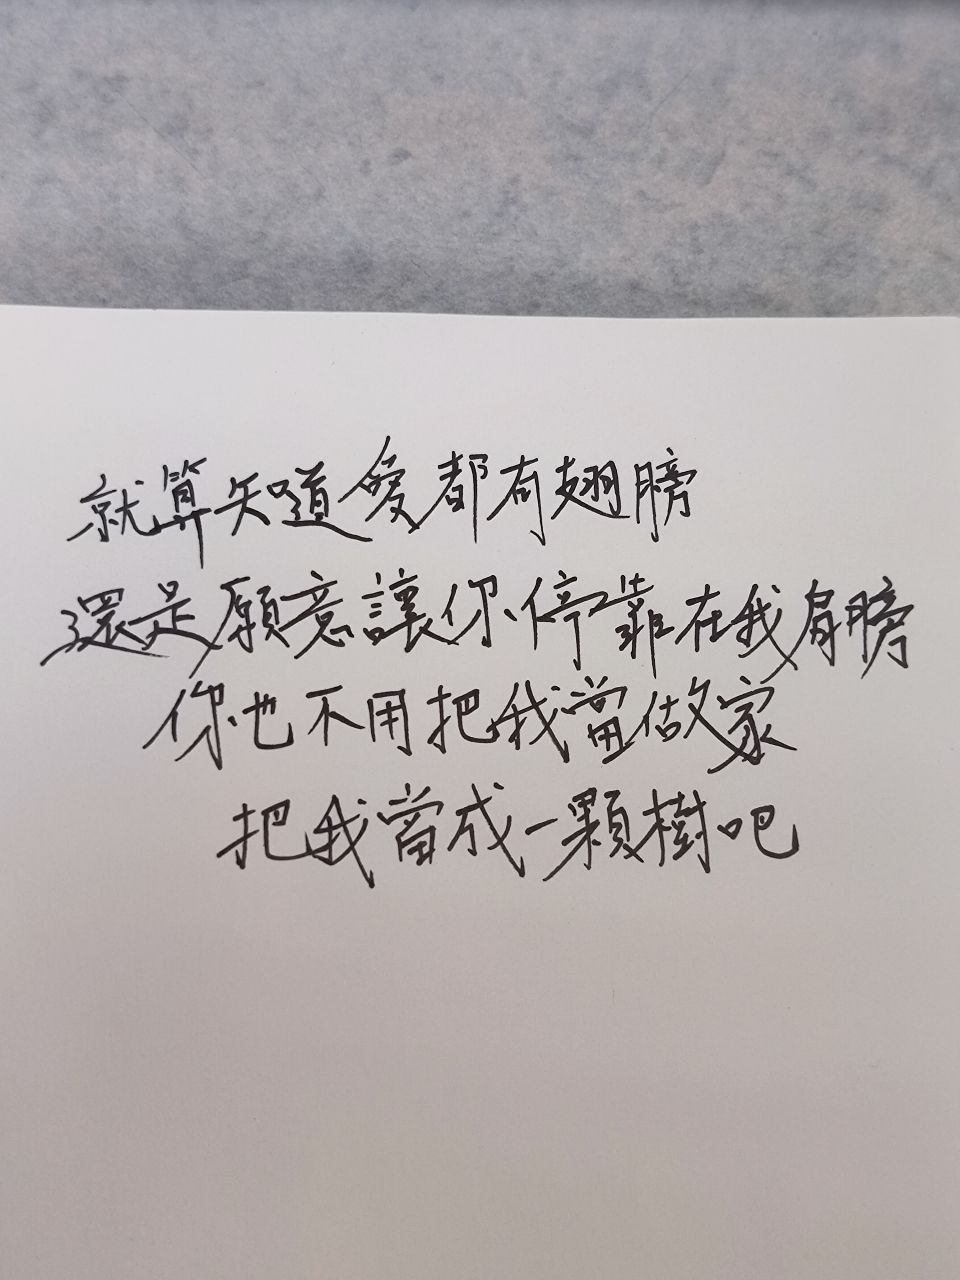 就算知道愛都有翅膀
還是願意讓你停靠在我肩膀
你也不用把我當做家
把我當成一顆樹吧